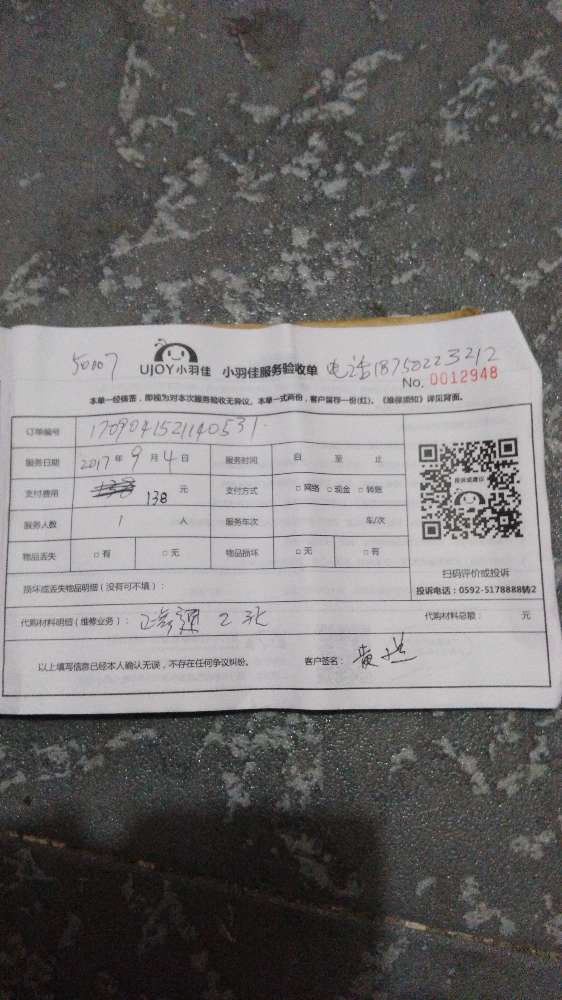 50007 UJOY小羽佳 小羽佳服务验收单 电话18750223212
No. 0012948
本单一经签签，即视为对本次服务验收无异议。本单一式两份，客户留存一份(红)。《维保须知》详见背面。
订单编号 1709041521140531
服务日期 2017年 9 月 4 日 服务时间 自 至 止
支付费用 138 元 支付方式 □网络 □现金 □转账
服务人数 1 人 服务车次 车/次
物品丢失 □有 □无 物品损坏 □无 □有
投诉或建议
扫码评价或投诉
投诉电话：0592-5178888转2
损坏或丢失物品明细（没有可不填）：
代购材料明细（维修业务）： 2张 代购材料总额： 元
以上填写信息已经本人确认无误，不存在任何争议纠纷。 客户签名： 黄